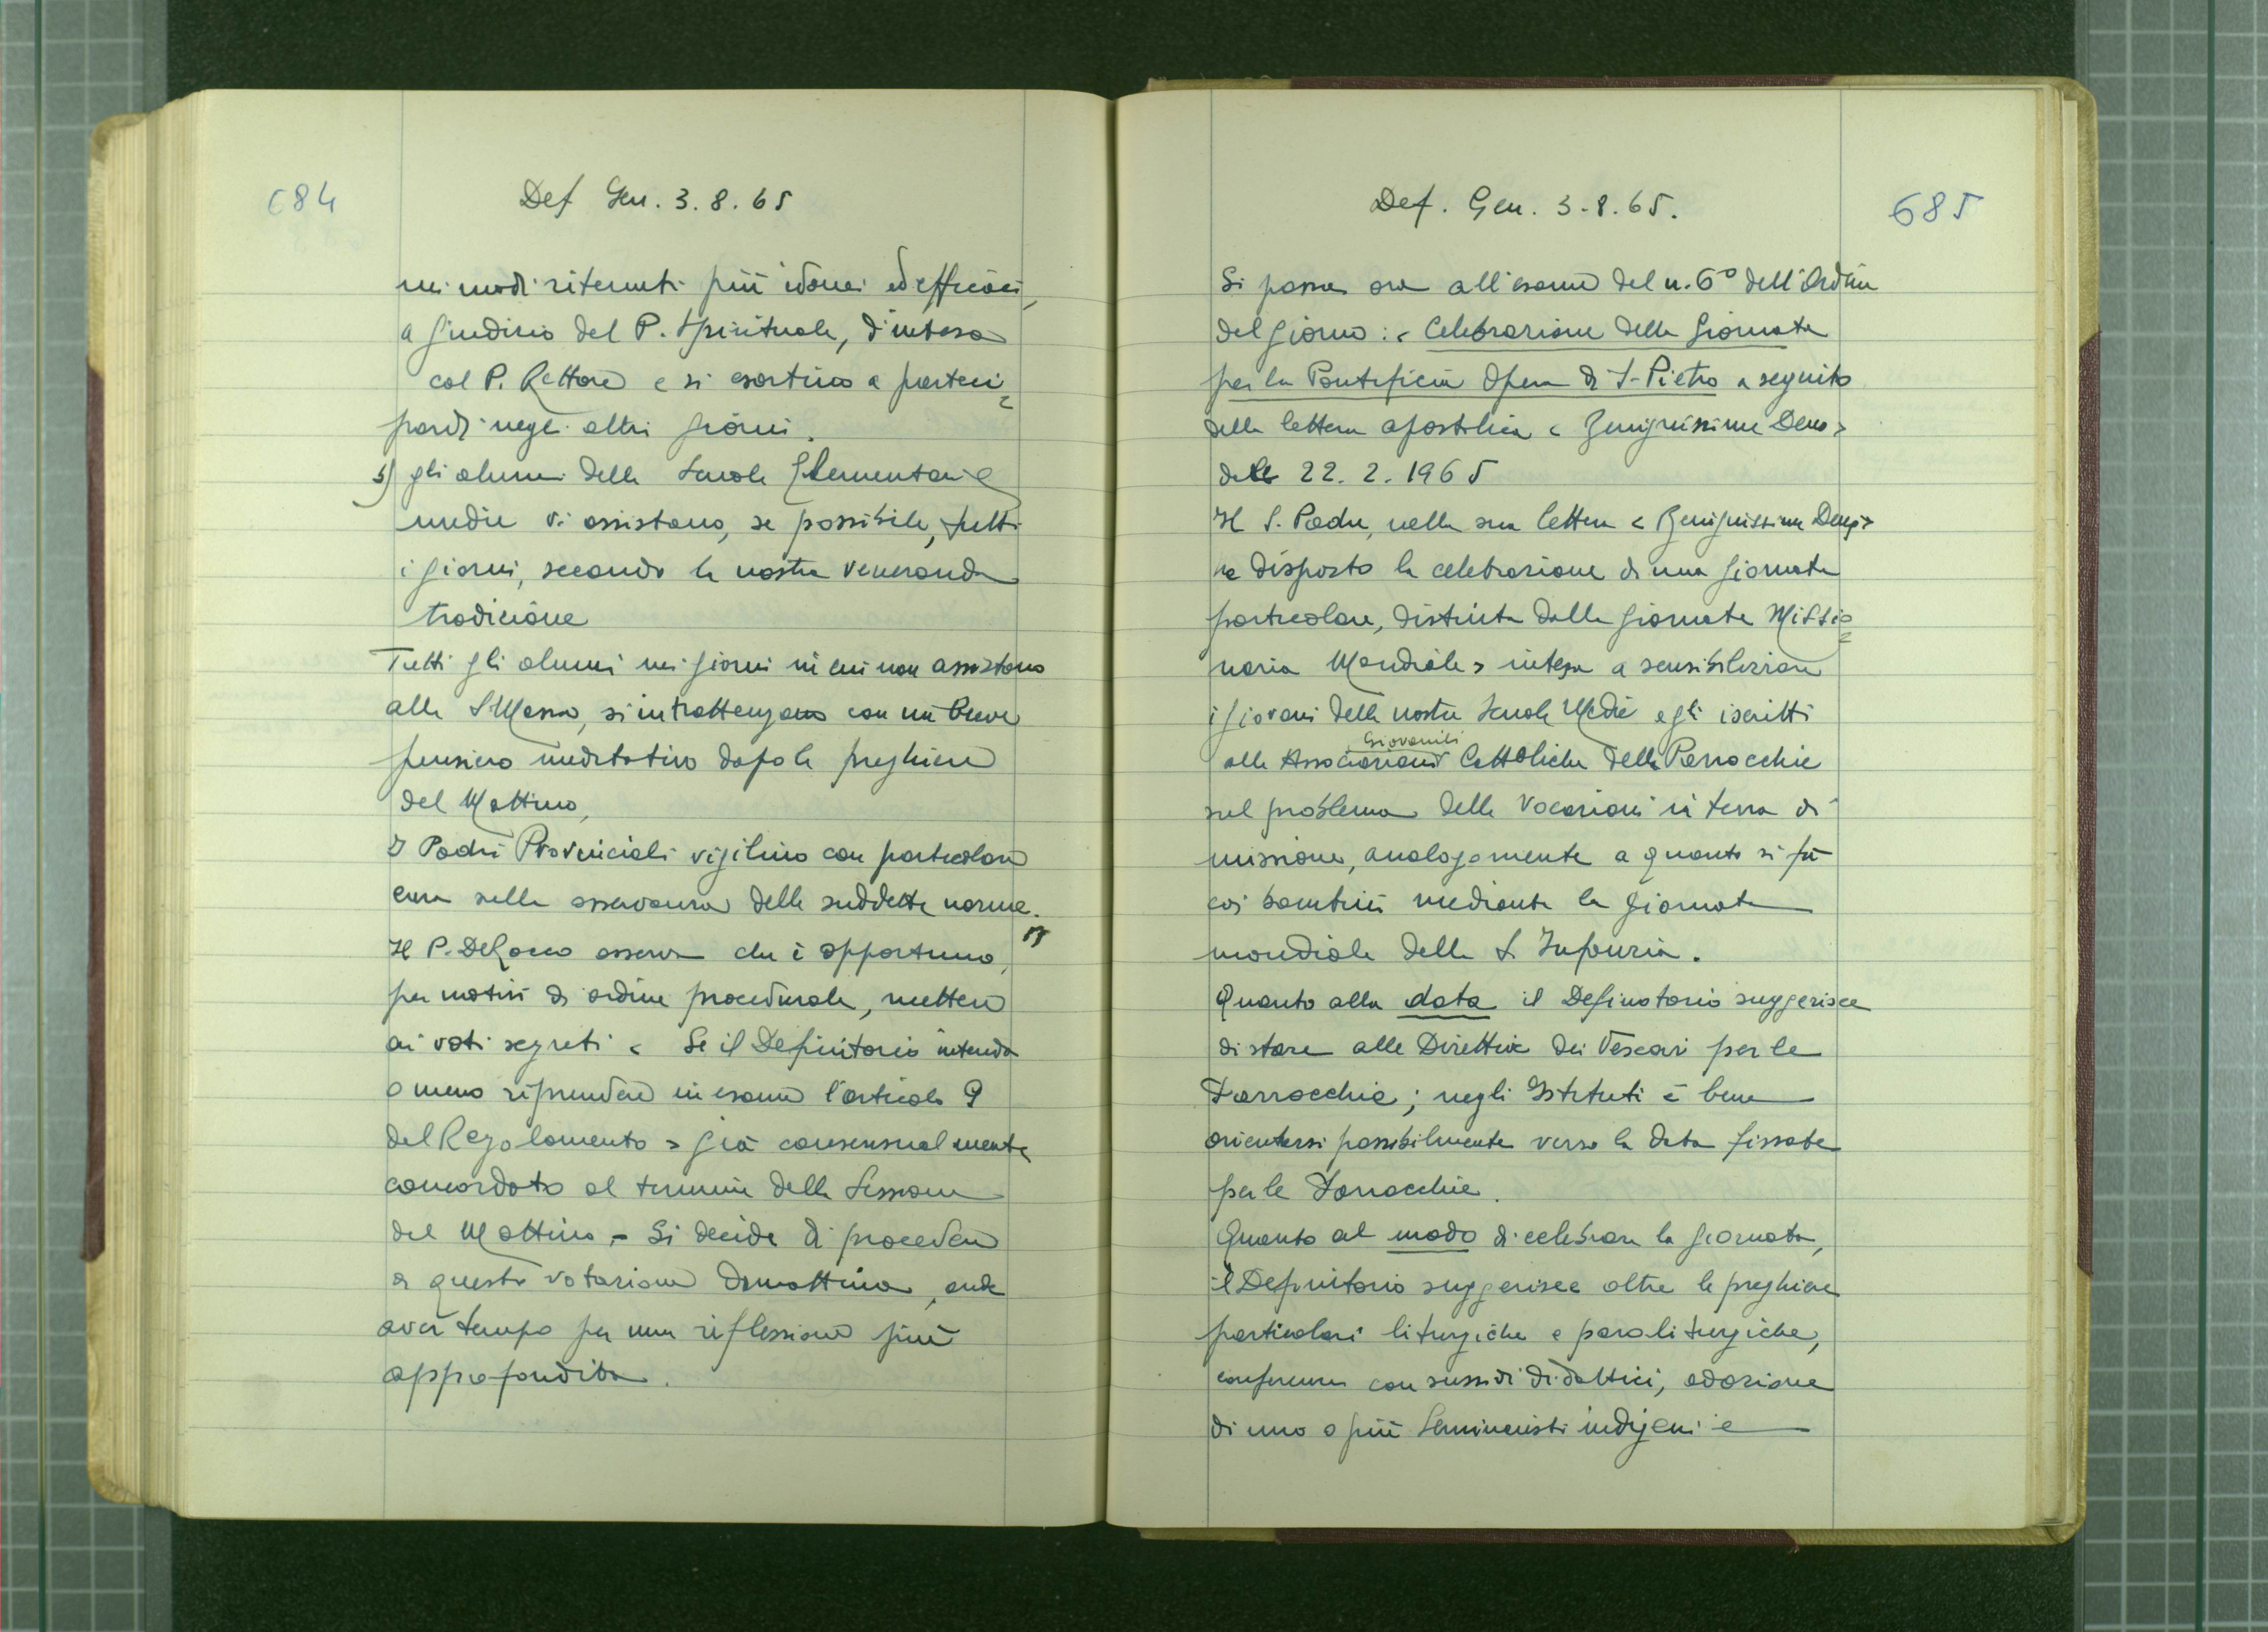 684
Def Gen. 3.8.65
nei modi ritenuti più idonei ed efficaci,
a giudizio del P. Spirituale, d'intesa
col P. Rettore e si esortino a parteci=
parvi negli altri giorni.
5) gli alunni delle Scuole Elementari e
medie vi assistano, se possibile, tutti
i giorni, secondo la nostra veneranda
tradizione
Tutti gli alunni nei giorni in cui non assistono
alla S Messa, si intrattengano con un breve
pensiero meditativo dopo le preghiere
del Mattino,
I Padri Provinciali vigilino con particolare
cura sulla osservanza delle suddette norme.
Il P. DeRocco osserva che è opportuno,
per motivi di ordine procedurale, mettere
ai voti segreti < Se il Definitorio intenda
o meno riprendere in esame l'articolo 9
del Regolamento > già consensualmente
concordato al termine della Sessione
del Mattino. - Si decide di procedere
a questa votazione domattina, onde
aver tempo per una riflessione più
approfondita.
Def. Gen. 3-8.65.
685
Si passa ora all'esame del n. 6° dell'Ordine
del giorno: < Celebrazione della Giornata
per la Pontificia Opera di S-Pietro a seguito
della lettera apostolica < Benignissimus Deus >
del 22. 2. 1965
Il S. Padre, nella sua lettera < Benignissimus Deus >
ha disposto la celebrazione di una giornata
particolare, distinta dalla giornata Missio=
naria Mondiale > intesa a sensibilizzare
i giovani delle nostre Scuole Medie e gli iscritti
Giovanili
alle Associazioni Cattoliche delle Parrocchie
sul problema delle Vocazioni in terra di
missione, analogamente a quanto si fa
coi bambini mediante la giornata
mondiale della S. Infanzia.
Quanto alla data il Definitorio suggerisce
di stare alle Direttive dei Vescovi per le
Parrocchie; negli Istituti è bene
orientarsi possibilmente verso la data fissata
per le Parrocchie.
Quanto al modo di celebrare la giornata,
il Definitorio suggerisce oltre le preghiere
particolari liturgiche e paraliturgiche,
conferenze con sussidi didattici, adozione
di uno o più Seminaristi indigeni e